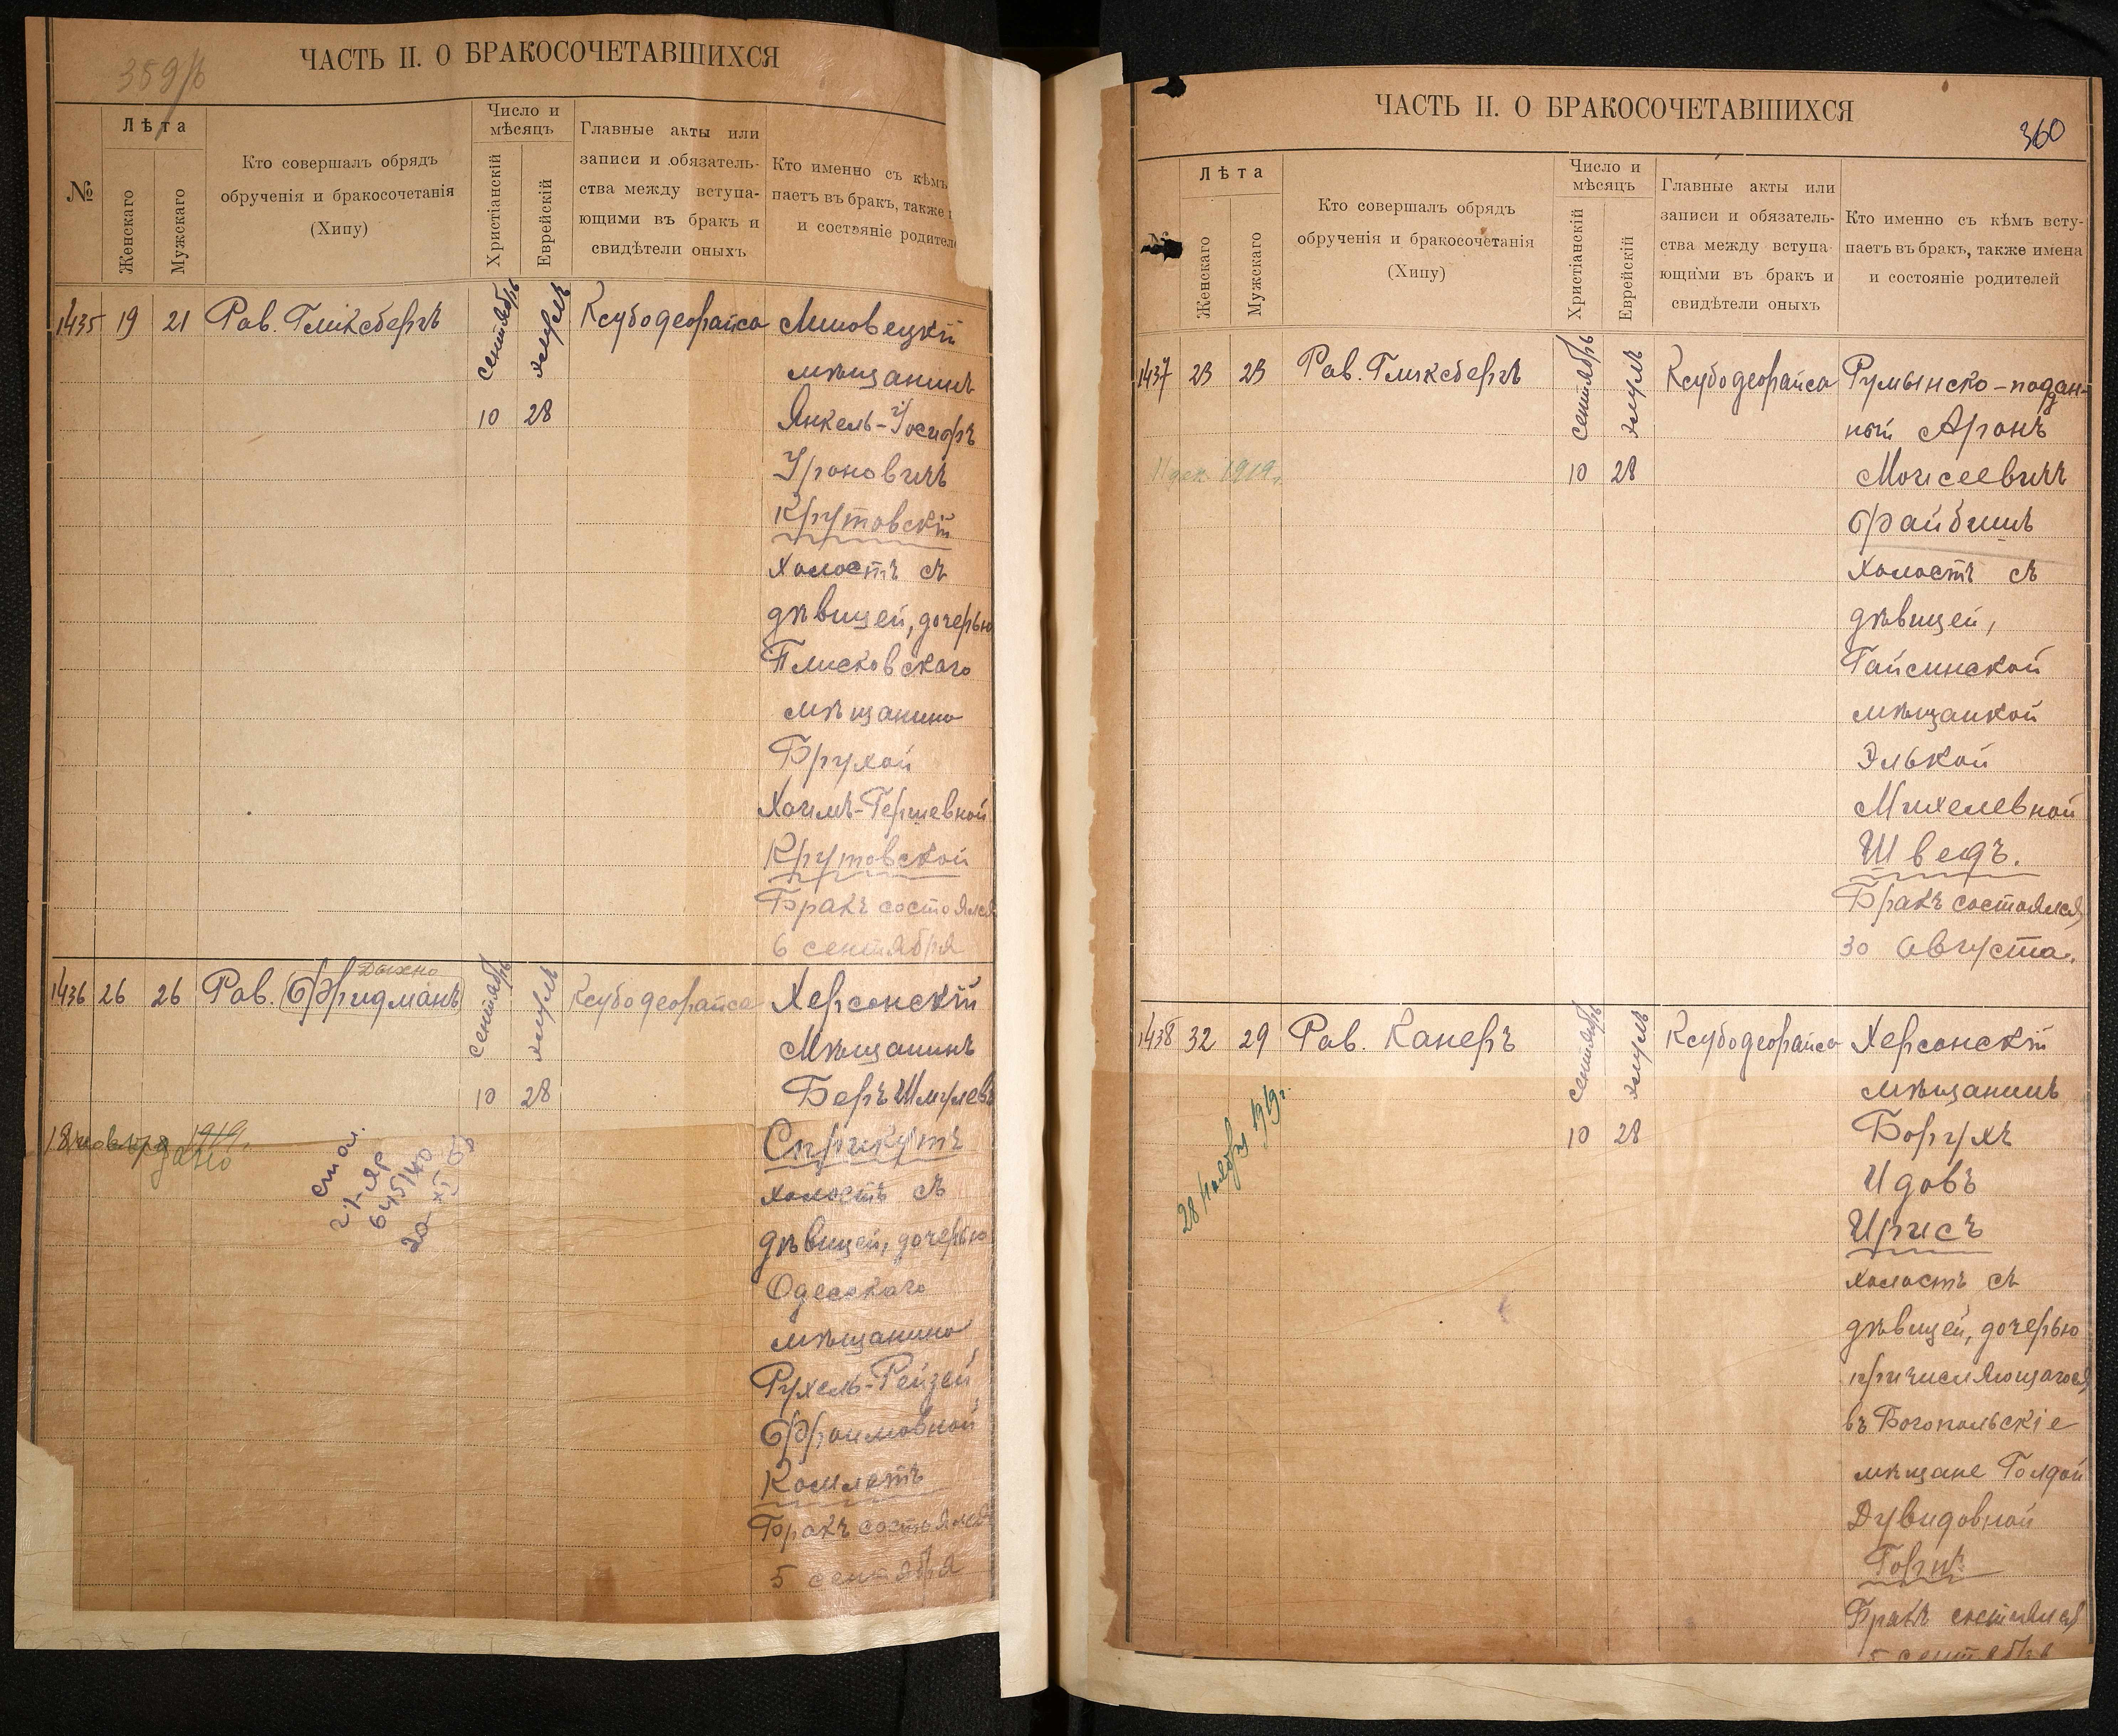 359/б
ЧАСТЬ II. О БРАКОСОЧЕТАВШИХСЯ
№
Лѣта
Женскаго
Мужскаго
Кто совершалъ обрядъ
обрученія и бракосочетанія
(Хипу)
Число и
мѣсяцъ
Христіанскій
Еврейскій
Главные акты или
записи и обязатель-
ства между вступа-
ющими въ бракъ и
свидѣтели оныхъ
Кто именно съ кѣмъ
паетъ въ бракъ, также
и состояніе родител
1435 19 21 Рав. Гликсбергъ сентябрь элулъ Ксубодеорайса
10 28
мѣщанинъ
Янкель-Іосифъ
Уроновичъ
Крутовскій
холостъ съ
дѣвицей, дочерью
Плисковскаго
мѣщанина
Брухой
Хаимъ-Гершевной
Крутовской
Бракъ состоялся
6 сентября
1436 26 26 Рав. Фридманъ сентябрь элулъ Ксубодеорайса Херсонскій
10 28
мѣщанинъ
Беръ Шмулевъ
Сприкутъ
холостъ съ
дѣвицей, дочерью
Одесскаго
мѣщанина
Рухель-Рейзей
Фроимовной
Комлатъ
Бракъ состоялся
5 сентября
1919г.
дано
645/40
ЧАСТЬ II. О БРАКОСОЧЕТАВШИХСЯ
360
Лѣта
Женскаго
Мужскаго
Кто совершалъ обрядъ
обрученія и бракосочетанія
(Хипу)
Число и
мѣсяцъ
Христіанскій
Еврейскій
Главные акты или
записи и обязатель-
ства между вступа-
ющими въ бракъ и
свидѣтели оныхъ
Кто именно съ кѣмъ всту-
паетъ въ бракъ, также имена
и состояніе родителей
1437 23 23 Рав. Гликсбергъ сентябрь элулъ Ксубодеорайса Румынско-поддан-
10 28
11 дек. 1919г.
ный Аронъ
Моисеевичъ
Фрайбишъ
холостъ съ
дѣвицей,
Гайсинской
мѣщанкой
Элькой
Михелевной
Шведъ.
Бракъ состоялся
30 августа.
1438 32 29 Рав. Канеръ сентябрь элулъ Ксубодеорайса Херсонскій
10 28
28 ноября 1919г.
мѣщанинъ
Борухъ
Идовъ
Ирисъ
холостъ съ
дѣвицей, дочерью
причисляющагося
въ Богопольскіе
мѣщане Голдой
Дувидовной
Бракъ состоялся
5 сентября